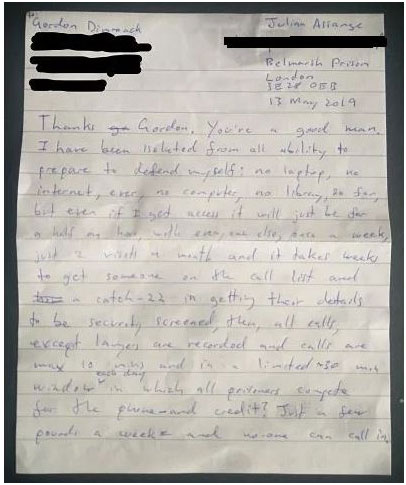 Gordon Dimmack
Julian Assange
Belmarsh Prison
London
SE28 0EB
13 May 2019
Thanks Gordon. You're a good man.
I have been isolated from all ability to
prepare to defend myself: no laptop, no
internet, ever, no computer, no library, so far,
but even if I get access it will just be for
a half an hour, with everyone else, once a week,
just 2 visits a month and it takes weeks
to get someone on the call list and
a catch-22 in getting their details
to be security screened, then, all calls,
except lawyer are recorded and calls are
max 10 mins and in a limited ~30 min
window each day in which all prisoners compete
for the phone and credit? Just a few
pounds a week and no-one can call in